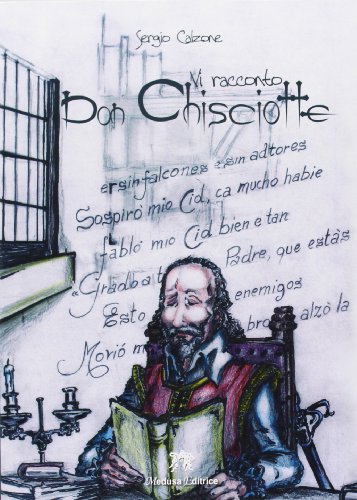 Sergio Calzone
Vi racconto
Don Chisciotte
er sin falcones e sin adtores
Sospirò mio Cid, ca mucho habie
fabló mio Cid bien e tan
«Grado a t Padre, que estás
Esto enemigos
bro alzò la
Movió m
Medusa Editrice